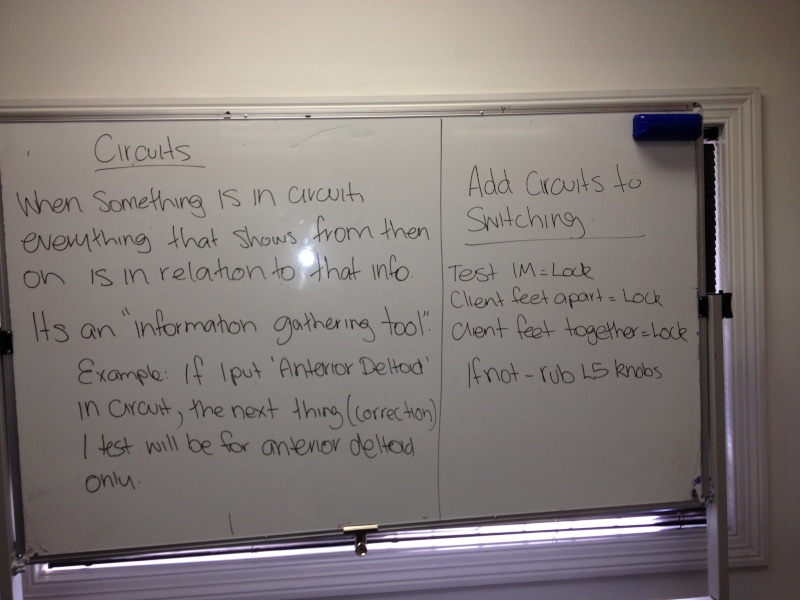 Circuits
When something is in circuit,
everything that shows from then
on is in relation to that info.
Its an "information gathering tool".
Example: If I put 'Anterior Deltoid'
in circuit, the next thing (correction)
I test will be for anterior deltoid
only.
Add Circuits to
Switching.
Test IM = Lock
Client feet apart = Lock
Client feet together = Lock.
If not - rub L5 knobs